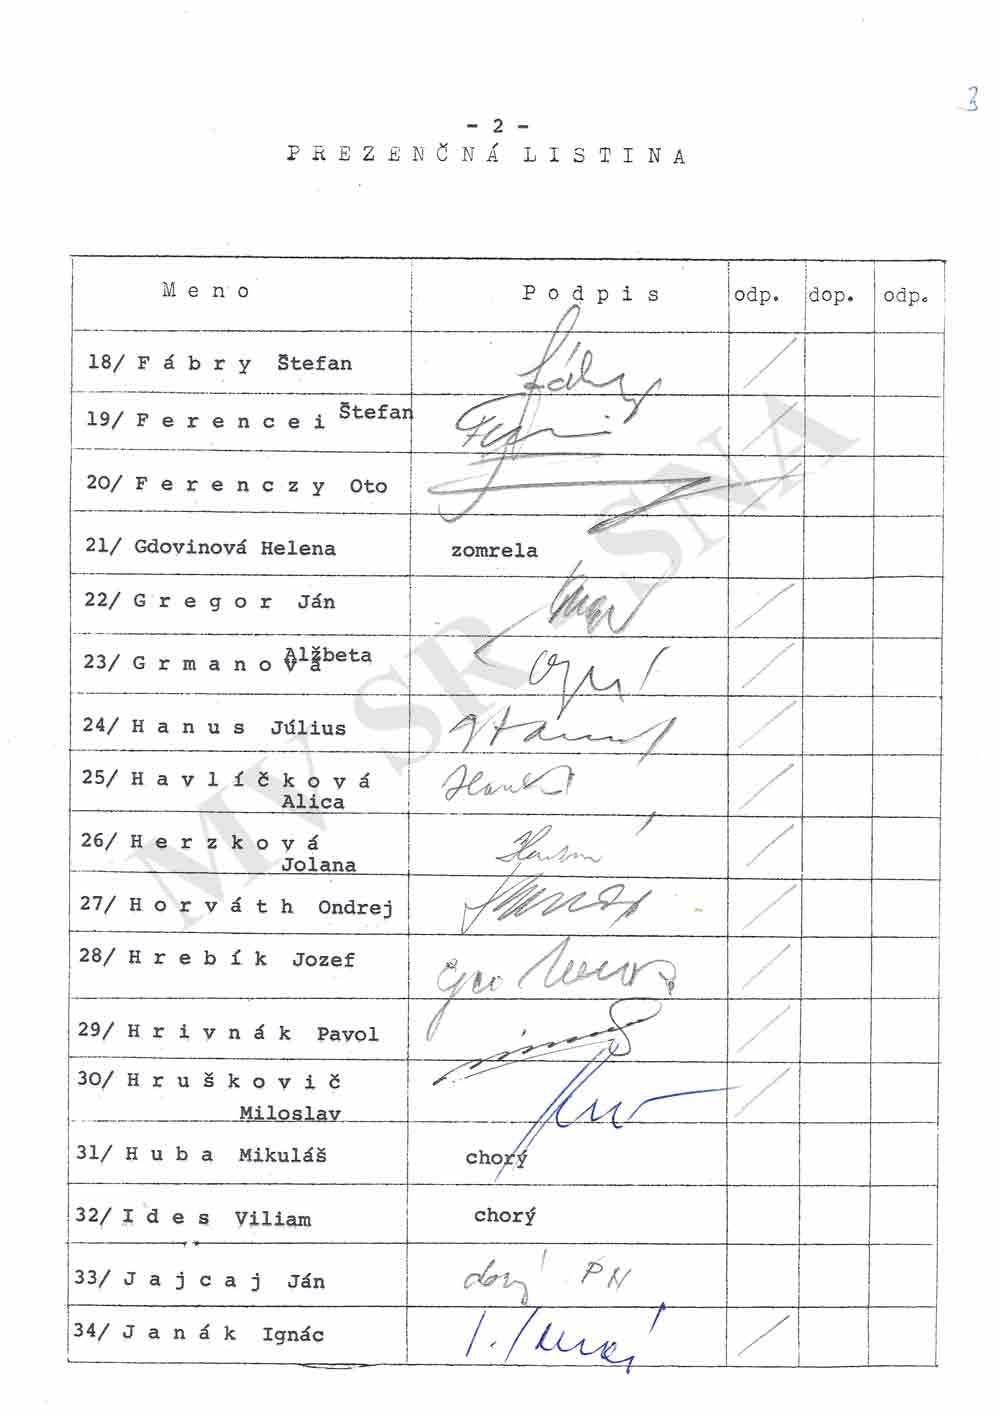 3
- 2 -
PREZENČNÁ LISTINA
Meno Podpis odp. dop. odp.
18/ Fábry Štefan
19/ Ferencei Štefan
20/ Ferenczy Oto
21/ Gdovinová Helena zomrela
22/ Gregor Ján
23/ Grmanová Alžbeta
24/ Hanus Július
25/ Havlíčková
Alica
26/ Herzková
Jolana
27/ Horváth Ondrej
28/ Hrebík Jozef
29/ Hrivnák Pavol
30/ Hruškovič
Miloslav
31/ Huba Mikuláš chorý
32/ Ides Viliam chorý
33/ Jajcaj Ján PN
34/ Janák Ignác
MV SR - SNA